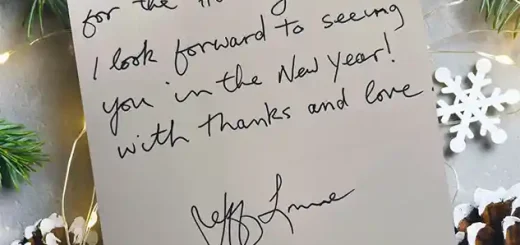 for the
I look forward to seeing
you in the New Year!
with thanks and love.
Jeff Lynne